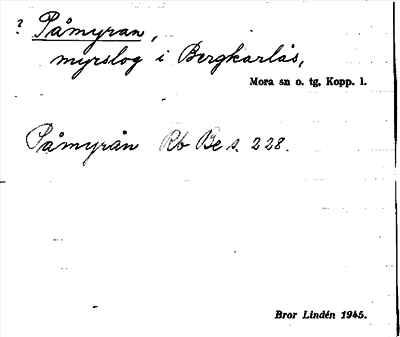 ? Påmyran,
myrslog i Bergkarlås,
Mora sn o. tg, Kopp. l.
Påmyrån Rb Be s. 228.
Bror Lindén 1945.